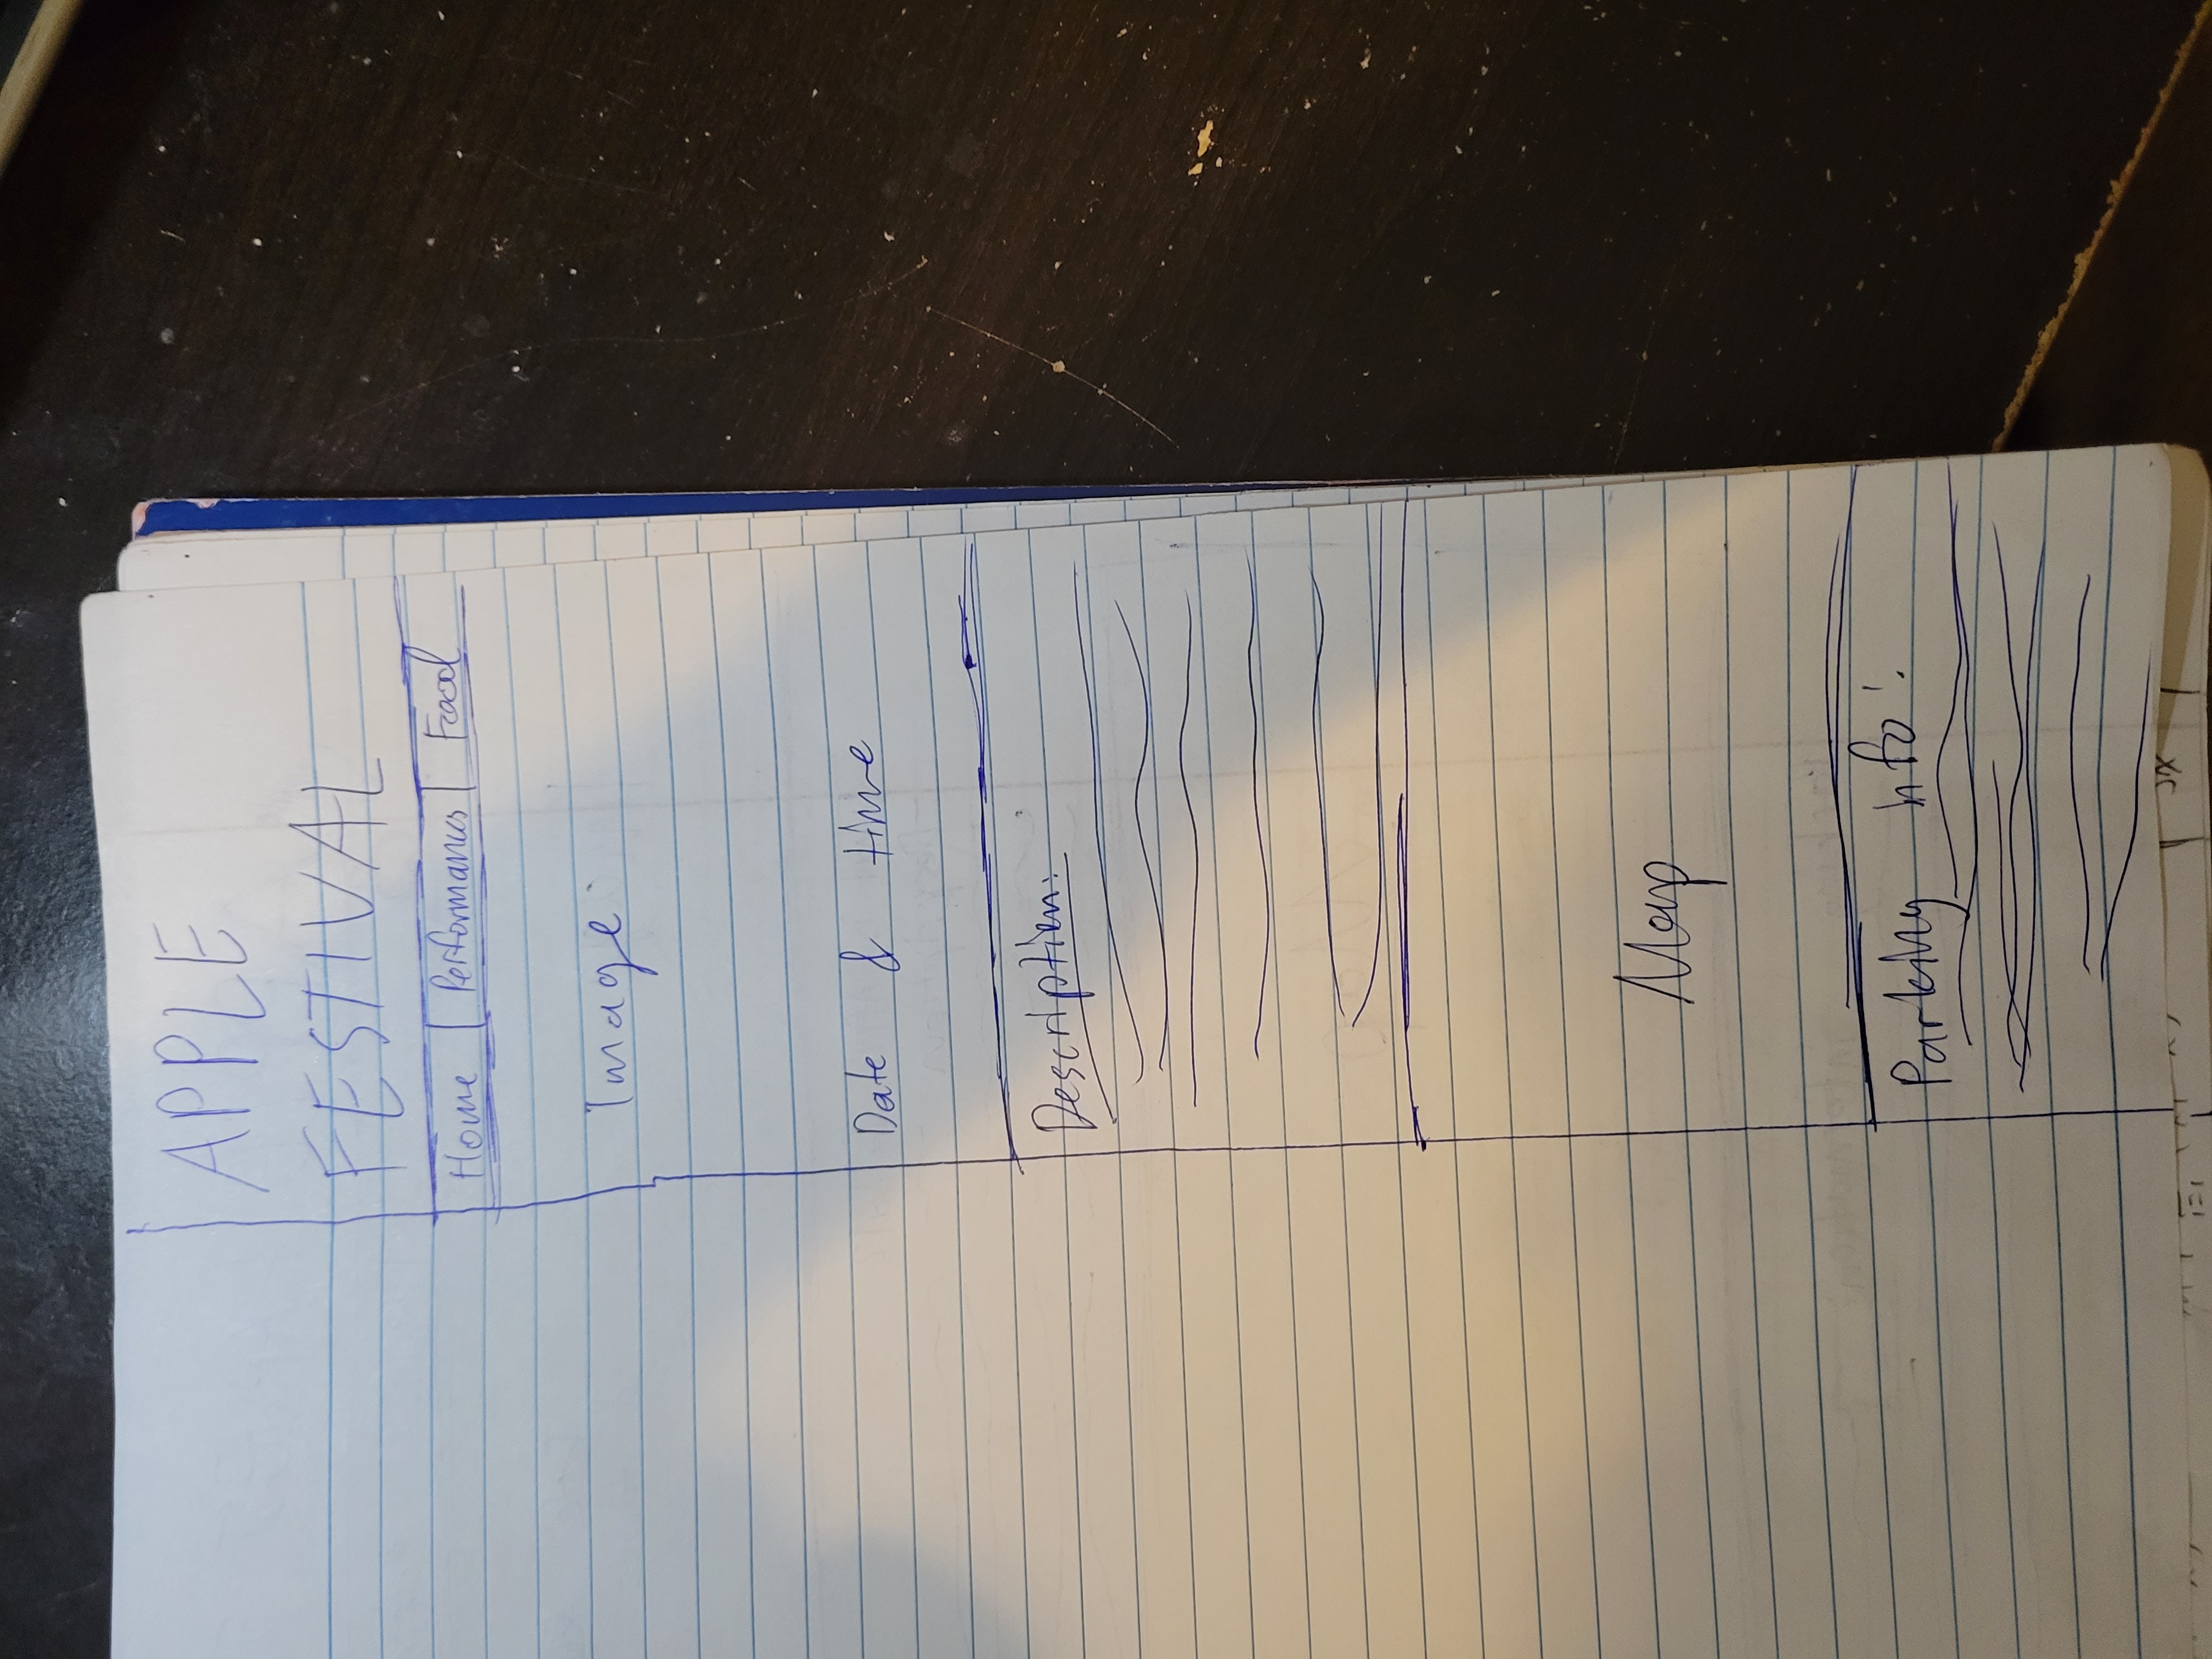 APPLE
FESTIVAL
Home Performances Food
Image
Date & time
Description:
Map
Parking info: